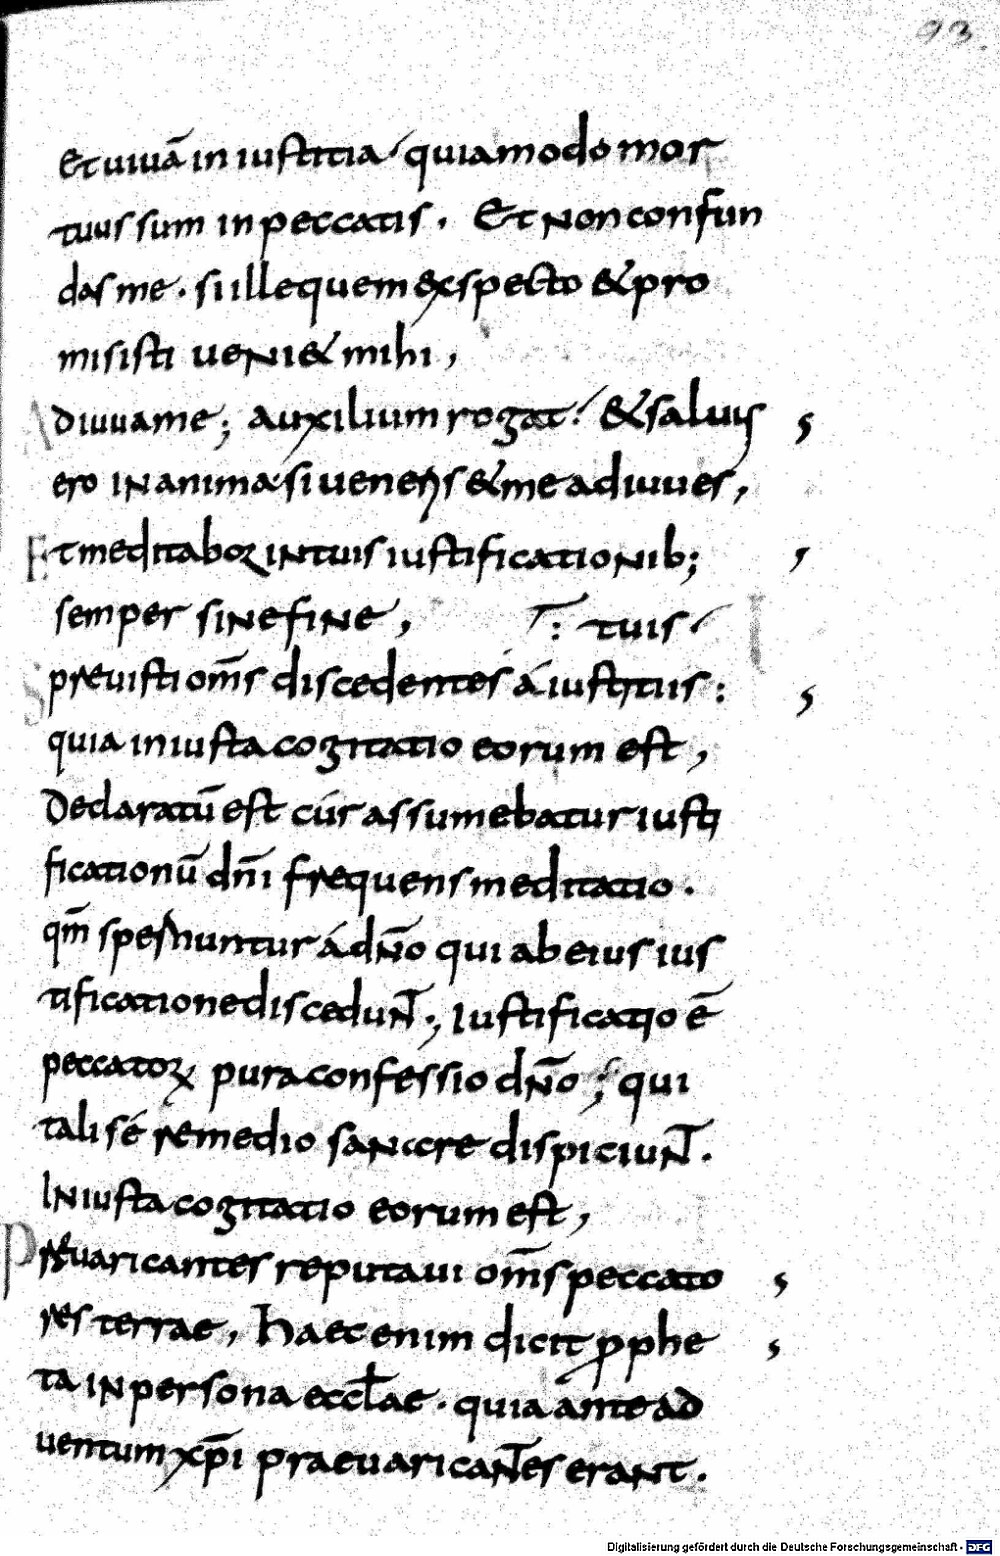 93
Et uiuā in iustitia quia modo mor
tuus sum in peccatis. Et non confun
das me. si ille quem exspecto & pro
misisti ueni& mihi,
Adiuua me; auxilium rogat & saluus
ero in anima si ueneris & me adiuues,
Et meditabor in tuis iustificationib;
semper sine fine, : tuis
Spreuisti om̄s discedentes á iustitiis:
quia iniusta cogitatio eorum est,
Declaratū est cúr assumebatur iusti
ficationū dn̄i frequens meditatio.
qm̄ spernuntur á dn̄o qui ab eius ius
tificatione discedunt; Iustificatio ē
peccatoꝝ pura confessio dn̄o; qui
tali sé remedio sancire dispiciunt.
Iniusta cogitatio eorum est,
Preuaricantes reputaui om̄s peccato
res terrae, haec enim dicit prophe
ta in persona eccłae. quia ante ad
uentum xp̄i praeuaricantes erant.
Digitalisierung gefördert durch die Deutsche Forschungsgemeinschaft - DFG